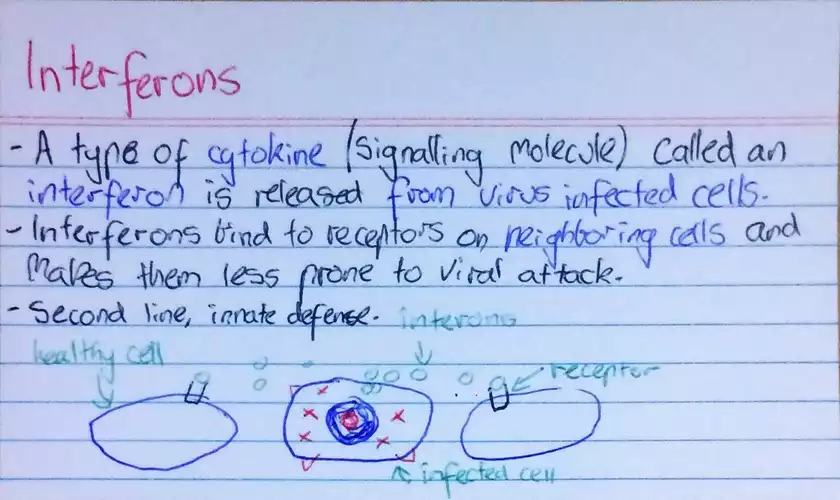 Interferons
- A type of cytokine (signalling molecule) called an
interferon is released from virus infected cells.
- Interferons bind to receptors on neighboring cells and
makes them less prone to viral attack.
- Second line, innate defense.
interons
healthy cell
receptor
infected cell